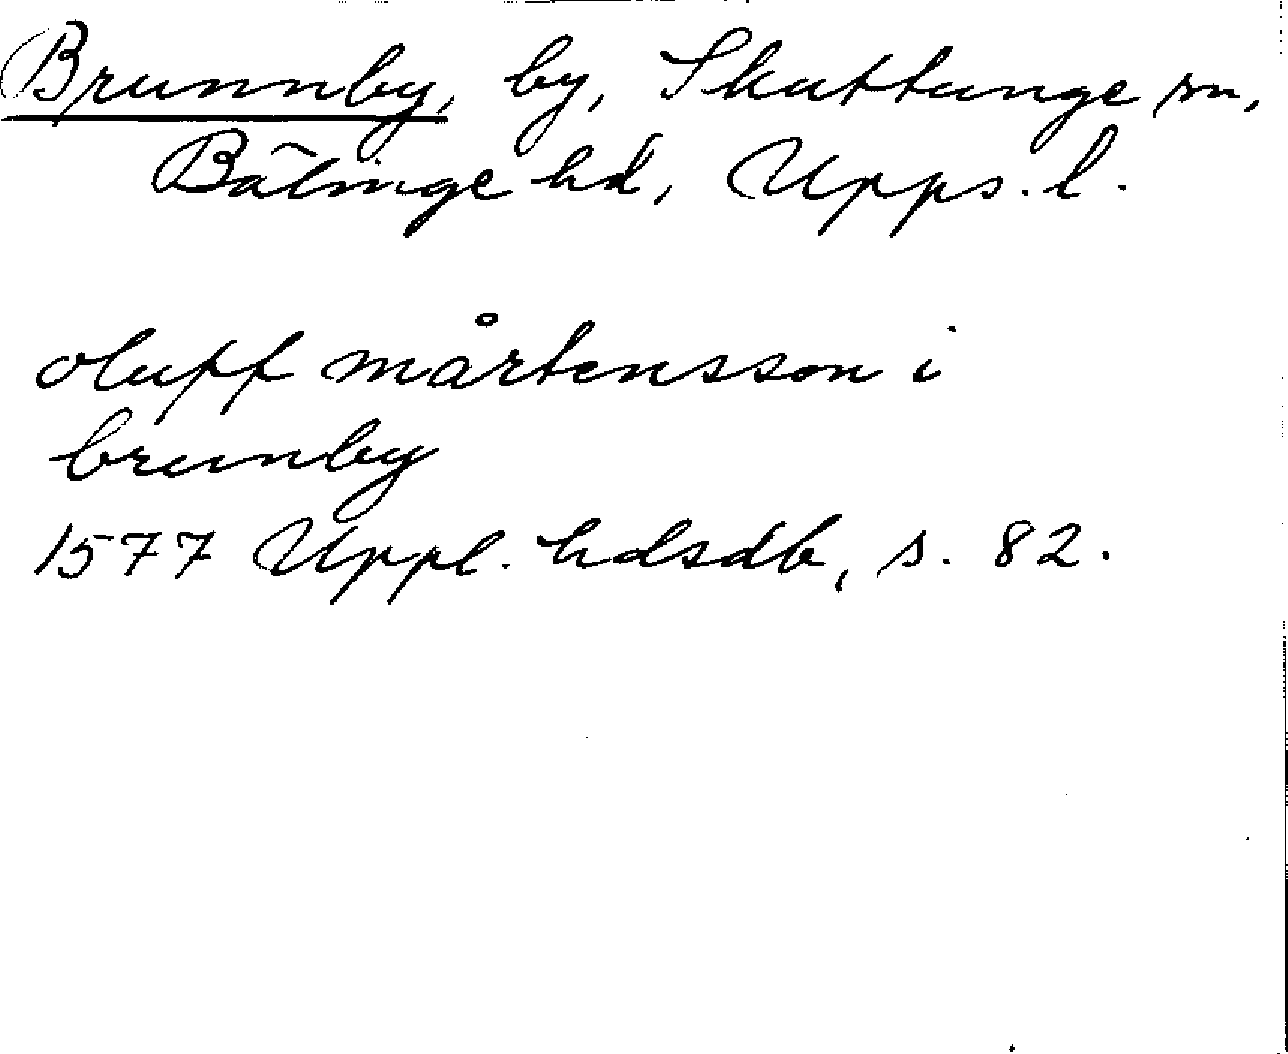 Brunnby, by, Skuttunge sn,
Bälinge hd, Upps. l.
oluff mårtensson i
brunby
1577 Uppl. hdsdb, s. 82.